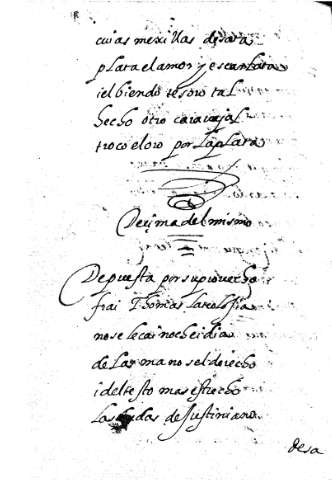 cuias mexillas desata
plata el amor, y escarlata
i el biendo tesoro tal
hecho otro carauajal
troco el oro por la plata
Deçima del mismo
De puesta por su prouecho
frai Thomas la teolosia
no se le cai noche i dia
de las manos el derecho
i del testo mas estrecho
las dudas de Justiniano
desa